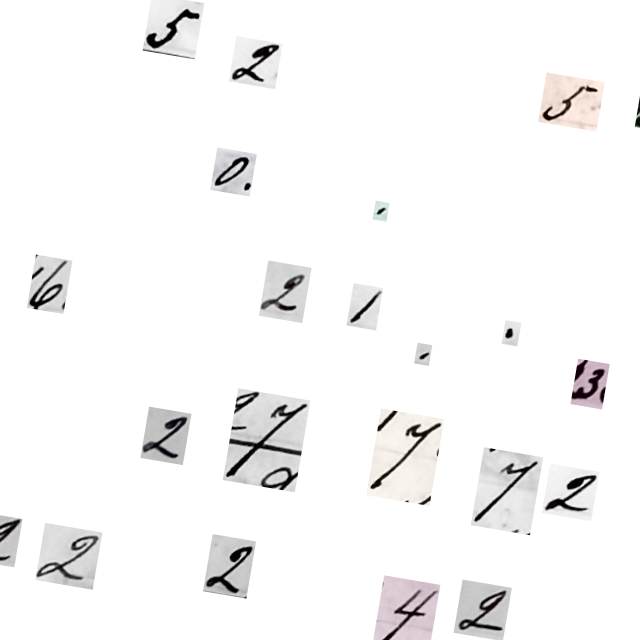 5 2 5
0.
6 2 1
3
2 7 7 7 2
2 2 2 4 2